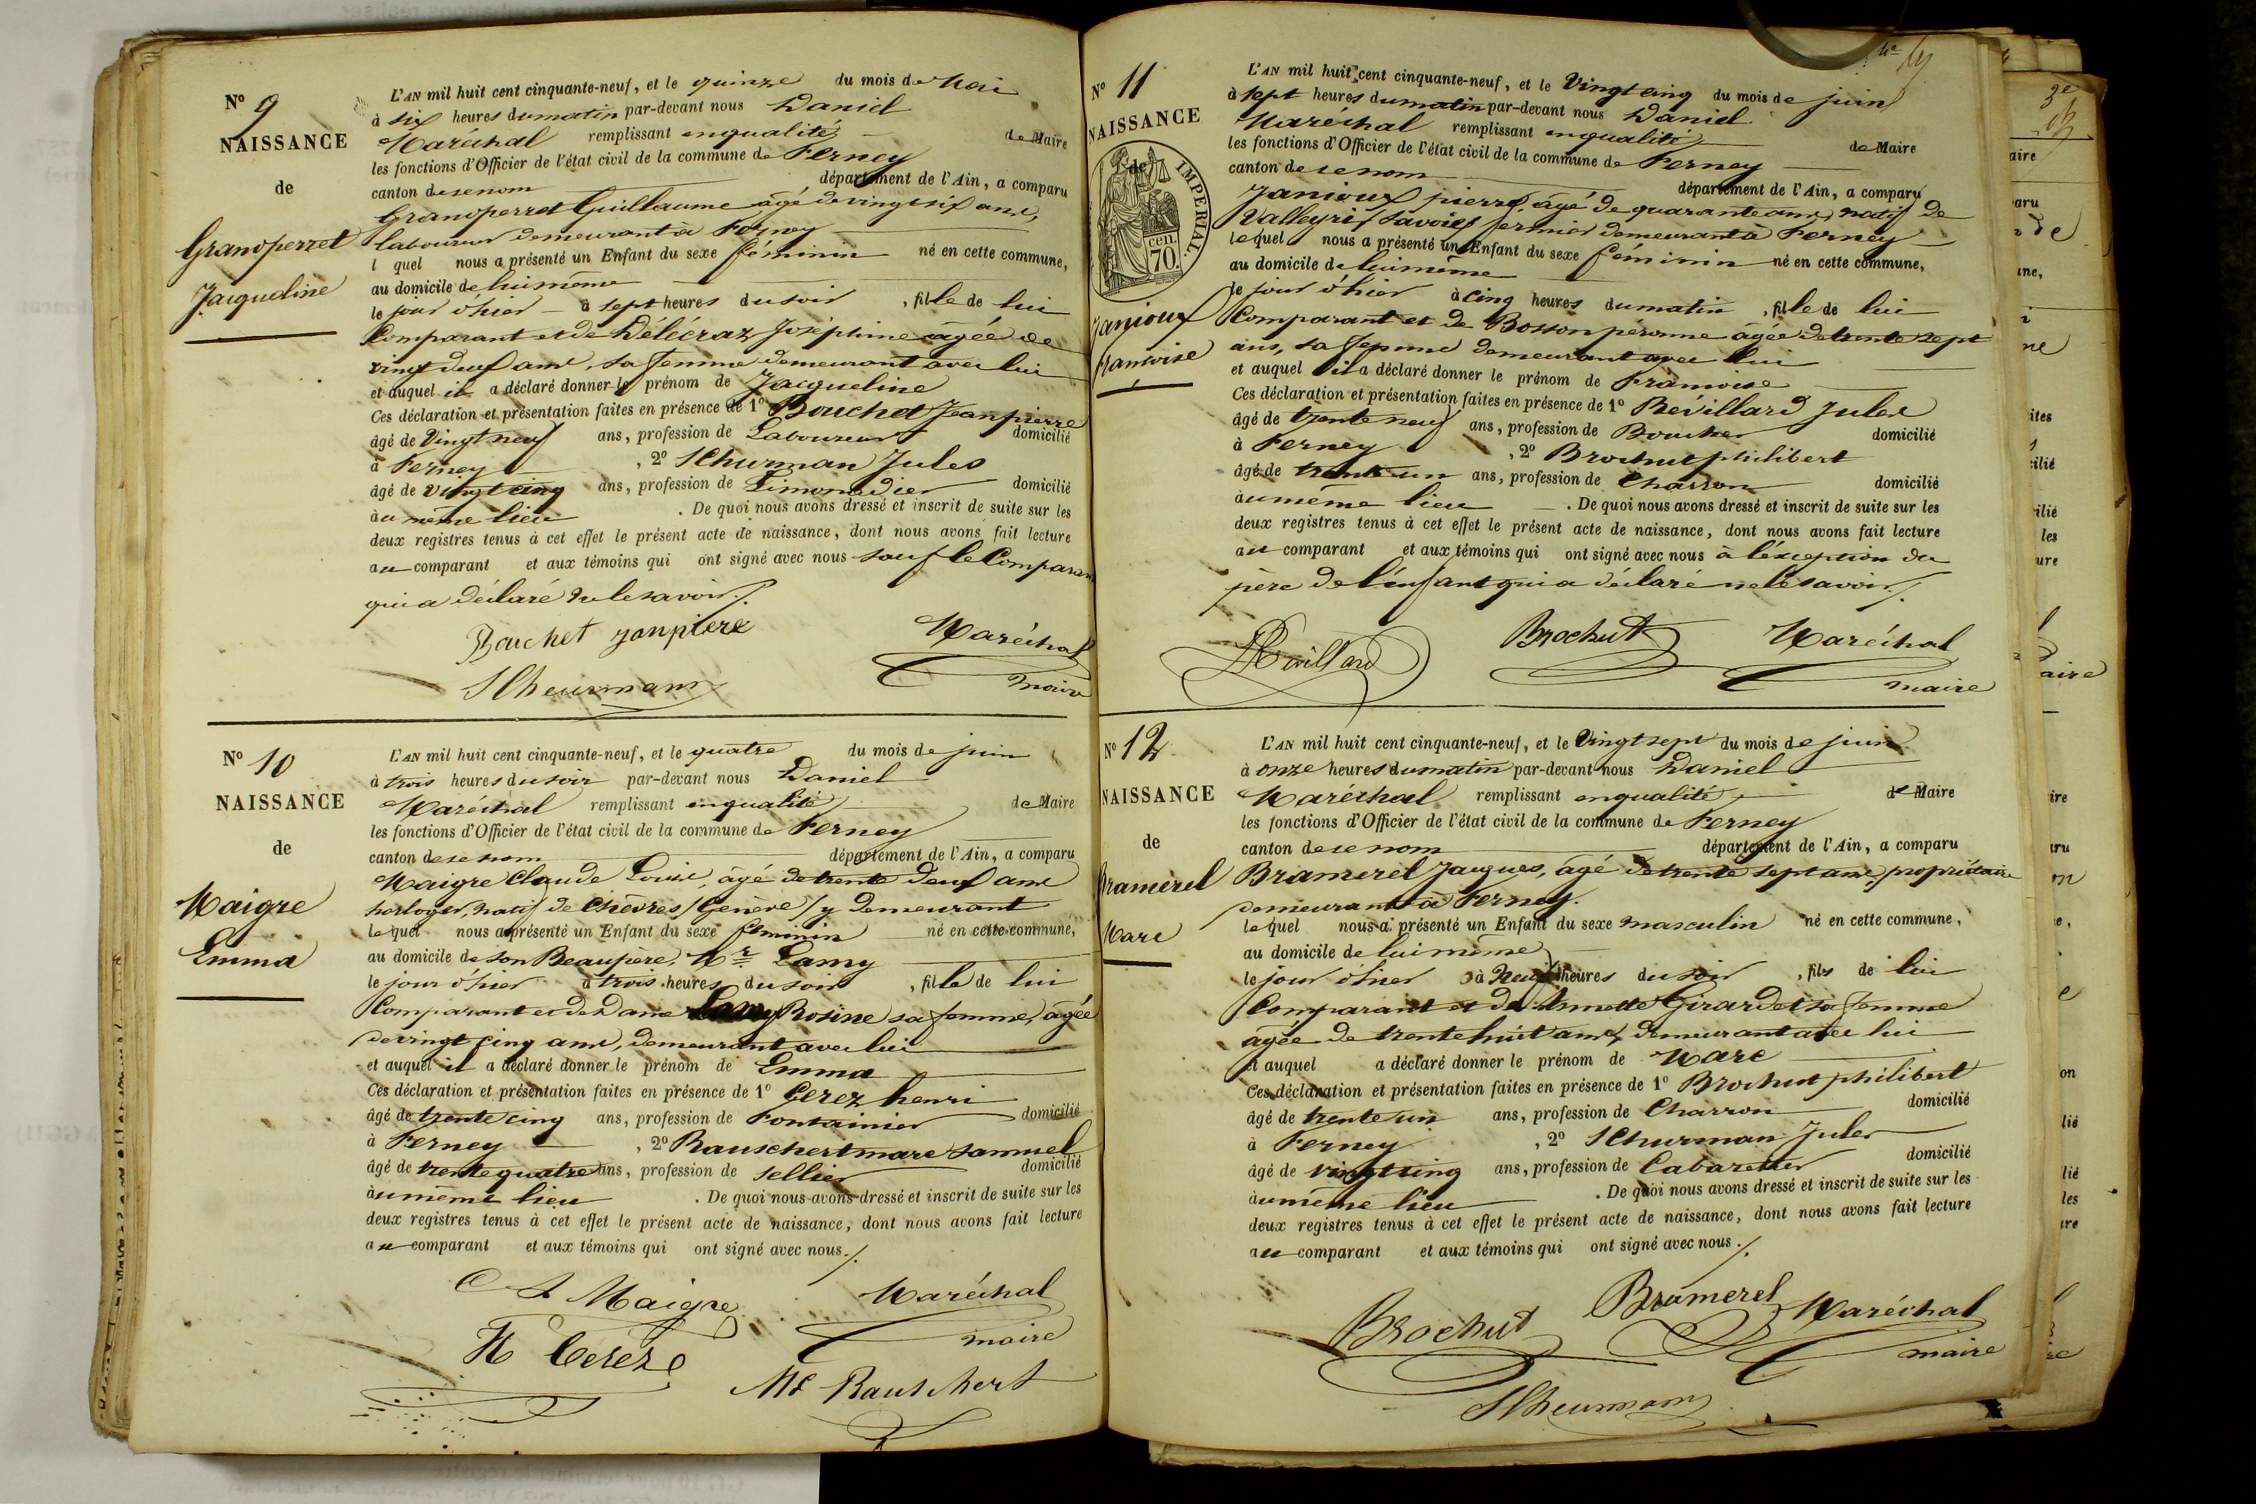 N° 9
NAISSANCE
de
Grandperret
Jacqueline
L'AN mil huit cent cinquante-neuf, et le quinze du mois de Mai
à six heures du matin par-devant nous Daniel
Maréchal remplissant en qualité de Maire
les fonctions d'Officier de l'état civil de la commune de Ferney
canton de ce nom département de l'Ain, a comparu
Grandperret Guillaume âgé de vingt six ans,
laboureur demeurant à Ferney
l quel nous a présenté un Enfant du sexe féminin né en cette commune,
au domicile de lui même
le jour d'hier à sept heures du soir, fille de lui
Comparant et de Délécraz Joséphine âgée de
vingt deux ans, sa femme demeurant avec lui
et auquel il a déclaré donner le prénom de Jacqueline
Ces déclaration et présentation faites en présence de 1° Bouchet Jean pierre
âgé de Vingt neuf ans, profession de Laboureur domicilié
à Ferney, 2° Schurman Jules
âgé de vingt cinq ans, profession de Limonadier domicilié
au même lieu. De quoi nous avons dressé et inscrit de suite sur les
deux registres tenus à cet effet le présent acte de naissance, dont nous avons fait lecture
au comparant et aux témoins qui ont signé avec nous sauf le Comparant
qui a déclaré ne le savoir./.
Bouchet janpiere Maréchal
Scheurmann maire
N° 10
NAISSANCE
de
Maigre
Emma
L'AN mil huit cent cinquante-neuf, et le quatre du mois de juin
à trois heures du soir par-devant nous Daniel
Maréchal remplissant en qualité de Maire
les fonctions d'Officier de l'état civil de la commune de Ferney
canton de ce nom département de l'Ain, a comparu
Maigre Claude Louis, âgé de trente deux ans
horloger, natif de Chèvres / Genève / y demeurant
lequel nous a présenté un Enfant du sexe féminin né en cette commune,
au domicile de son Beaupère, Mr Lamy
le jour d'hier à trois heures du soir, fille de lui
Comparant et de Dame Lamy Rosine sa femme, âgée
de vingt cinq ans, demeurant avec lui
et auquel il a déclaré donner le prénom de Emma
Ces déclaration et présentation faites en présence de 1° Cerez henri
âgé de trente cinq ans, profession de Fontainier domicilié
à Ferney, 2° Rauschert marc samuel
âgé de trente quatre ans, profession de sellier domicilié
au même lieu. De quoi nous avons dressé et inscrit de suite sur les
deux registres tenus à cet effet le présent acte de naissance, dont nous avons fait lecture
au comparant et aux témoins qui ont signé avec nous./.
C L Maigre Maréchal
H Cérèz maire
MS Rauschert
N° 11
NAISSANCE
de
IMPERIAL.
cen.
70.
Janioux
françoise
L'AN mil huit cent cinquante-neuf, et le Vingt cinq du mois de juin
à sept heures du matin par-devant nous Daniel
Maréchal remplissant en qualité de Maire
les fonctions d'Officier de l'état civil de la commune de Ferney
canton de ce nom département de l'Ain, a comparu
Janioux pierre, âgé de quarante ans, natif de
Valleyris / savoie / fermier demeurant à Ferney
lequel nous a présenté un Enfant du sexe féminin né en cette commune,
au domicile de lui même
le jour d'hier à cinq heures du matin, fille de lui
Comparant et de Bosson peronne âgée de trente sept
ans, sa femme demeurant avec lui
et auquel il a déclaré donner le prénom de Françoise
Ces déclaration et présentation faites en présence de 1° Révillard Jules
âgé de trente neuf ans, profession de Boucher domicilié
à Ferney, 2° Brochut philibert
âgé de trente un ans, profession de Charron domicilié
au même lieu. De quoi nous avons dressé et inscrit de suite sur les
deux registres tenus à cet effet le présent acte de naissance, dont nous avons fait lecture
au comparant et aux témoins qui ont signé avec nous à l'éxception du
père de l'enfant qui a déclaré ne le savoir./.
Brochut Maréchal
maire
N° 12
NAISSANCE
de
Bramerel
Marc
L'AN mil huit cent cinquante-neuf, et le Vingt sept du mois de juin
à onze heures du matin par-devant nous Daniel
Maréchal remplissant en qualité de Maire
les fonctions d'Officier de l'état civil de la commune de Ferney
canton de ce nom département de l'Ain, a comparu
Bramerel Jacques, âgé de trente sept ans, propriétaire
demeurant à Ferney.
lequel nous a présenté un Enfant du sexe masculin né en cette commune,
au domicile de lui même
le jour d'hier à Neuf heures du soir, fils de lui
Comparant et de Annette Girardet sa femme
âgée de trente huit ans, demeurant avec lui
et auquel a déclaré donner le prénom de Marc
Ces déclaration et présentation faites en présence de 1° Brochut philibert
âgé de trente un ans, profession de Charron domicilié
à Ferney, 2° Schurman Jules
âgé de vingt cinq ans, profession de Cabaretier domicilié
au même lieu. De quoi nous avons dressé et inscrit de suite sur les
deux registres tenus à cet effet le présent acte de naissance, dont nous avons fait lecture
au comparant et aux témoins qui ont signé avec nous./.
Bramerel Maréchal
Brochut maire
Scheurmann